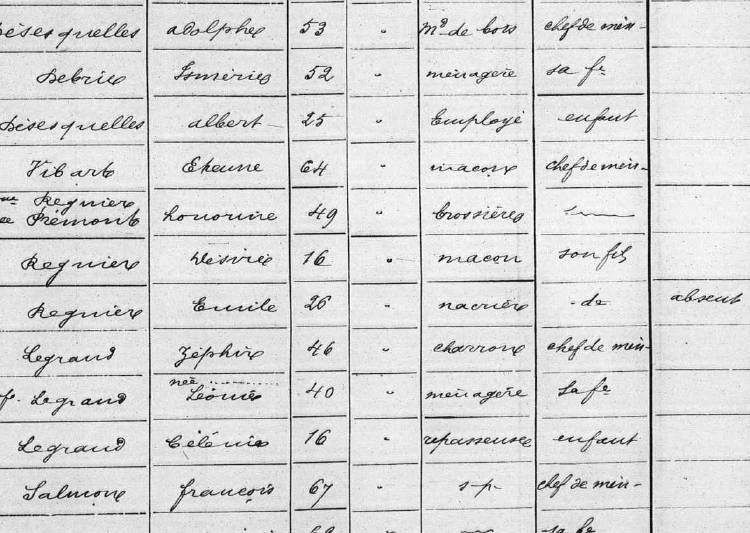 Désesquelles adolphe 53 " Md de bois chef de mén-
Debrie Isménie 52 " ménagère sa fe
Désesquelles albert 25 " Employé enfant
Vibart Etienne 64 " maçon chef de mén-
Regnier
Frémont honorine 49 " brossière
Regnier Désiré 16 " maçon son fils
Regnier Emile 26 " nacrière - de absent
Legrand Zéphir 46 " charron chef de mén-
née ..........
f. Legrand Léonie 40 " ménagère Sa fe
Legrand Célénie 16 " repasseuse enfant
Salmon françois 67 " s-p- chef de mén-
sa fe